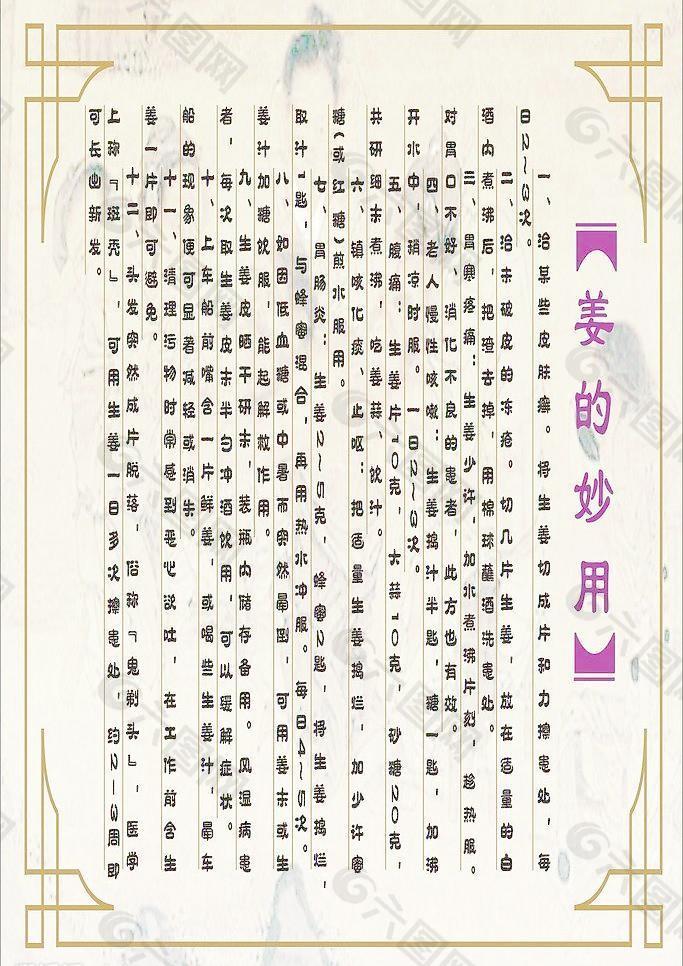 【姜的妙用】
一、治某些皮肤癣。将生姜切成片和力擦患处，每
日2～3次。
二、治未破皮的冻疮。切几片生姜，放在适量的白
酒内煮沸后，把渣去掉，用棉球蘸酒洗患处。
三、胃寒疼痛：生姜少许，加水煮沸片刻，趁热服。
对胃口不好、消化不良的患者，此方也有效。
四、老人慢性咳嗽：生姜捣汁半匙，糖一匙，加沸
开水中，稍凉时服。一日2～3次。
五、腹痛：生姜片10克，大蒜10克，砂糖20克，
共研细末煮沸，吃姜蒜、饮汁。
六、镇咳化痰、止呕：把适量生姜捣烂，加少许蜜
糖（或红糖）煎水服用。
七、胃肠炎：生姜2～5克，蜂蜜2匙，将生姜捣烂，
取汁1匙，与蜂蜜混合，再用热水冲服。每日4～5次。
八、如因低血糖或中暑而突然晕倒，可用姜末或生
姜汁加糖饮服，能起解救作用。
九、生姜皮晒干研末，装瓶内储存备用。风湿病患
者，每次取生姜皮末半勺冲酒饮用，可以缓解症状。
十、上车船前嘴含一片鲜姜，或喝些生姜汁，晕车
船的现象便可显著减轻或消失。
十一、清理污物时常感到恶心欲吐，在工作前含生
姜一片即可避免。
十二、头发突然成片脱落，俗称『鬼剃头』，医学
上称『斑秃』，可用生姜一日多次擦患处，约2－3周即
可长出新发。
六图网